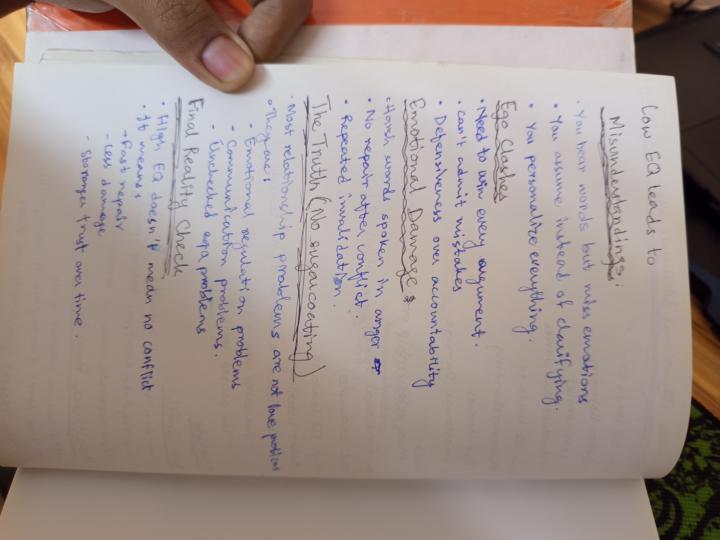 Low EQ leads to
Misunderstandings:
• You hear words but miss emotions
• You assume instead of clarifying.
• You personalize everything.
Ego Clashes
• Need to win every argument.
• Can't admit mistakes
• Defensiveness over accountability
Emotional Damage
• Harsh words spoken in anger
• No repair after conflict.
• Repeated invalidation.
The Truth (No sugarcoating)
• Most relationship problems are not love problems
• They are:
- Emotional regulation problems
- Communication problems.
- Unchecked ego problems
Final Reality Check
• High EQ doesn't mean no conflict
• It means:
- Fast repair
- Less damage
- Stronger trust over time.